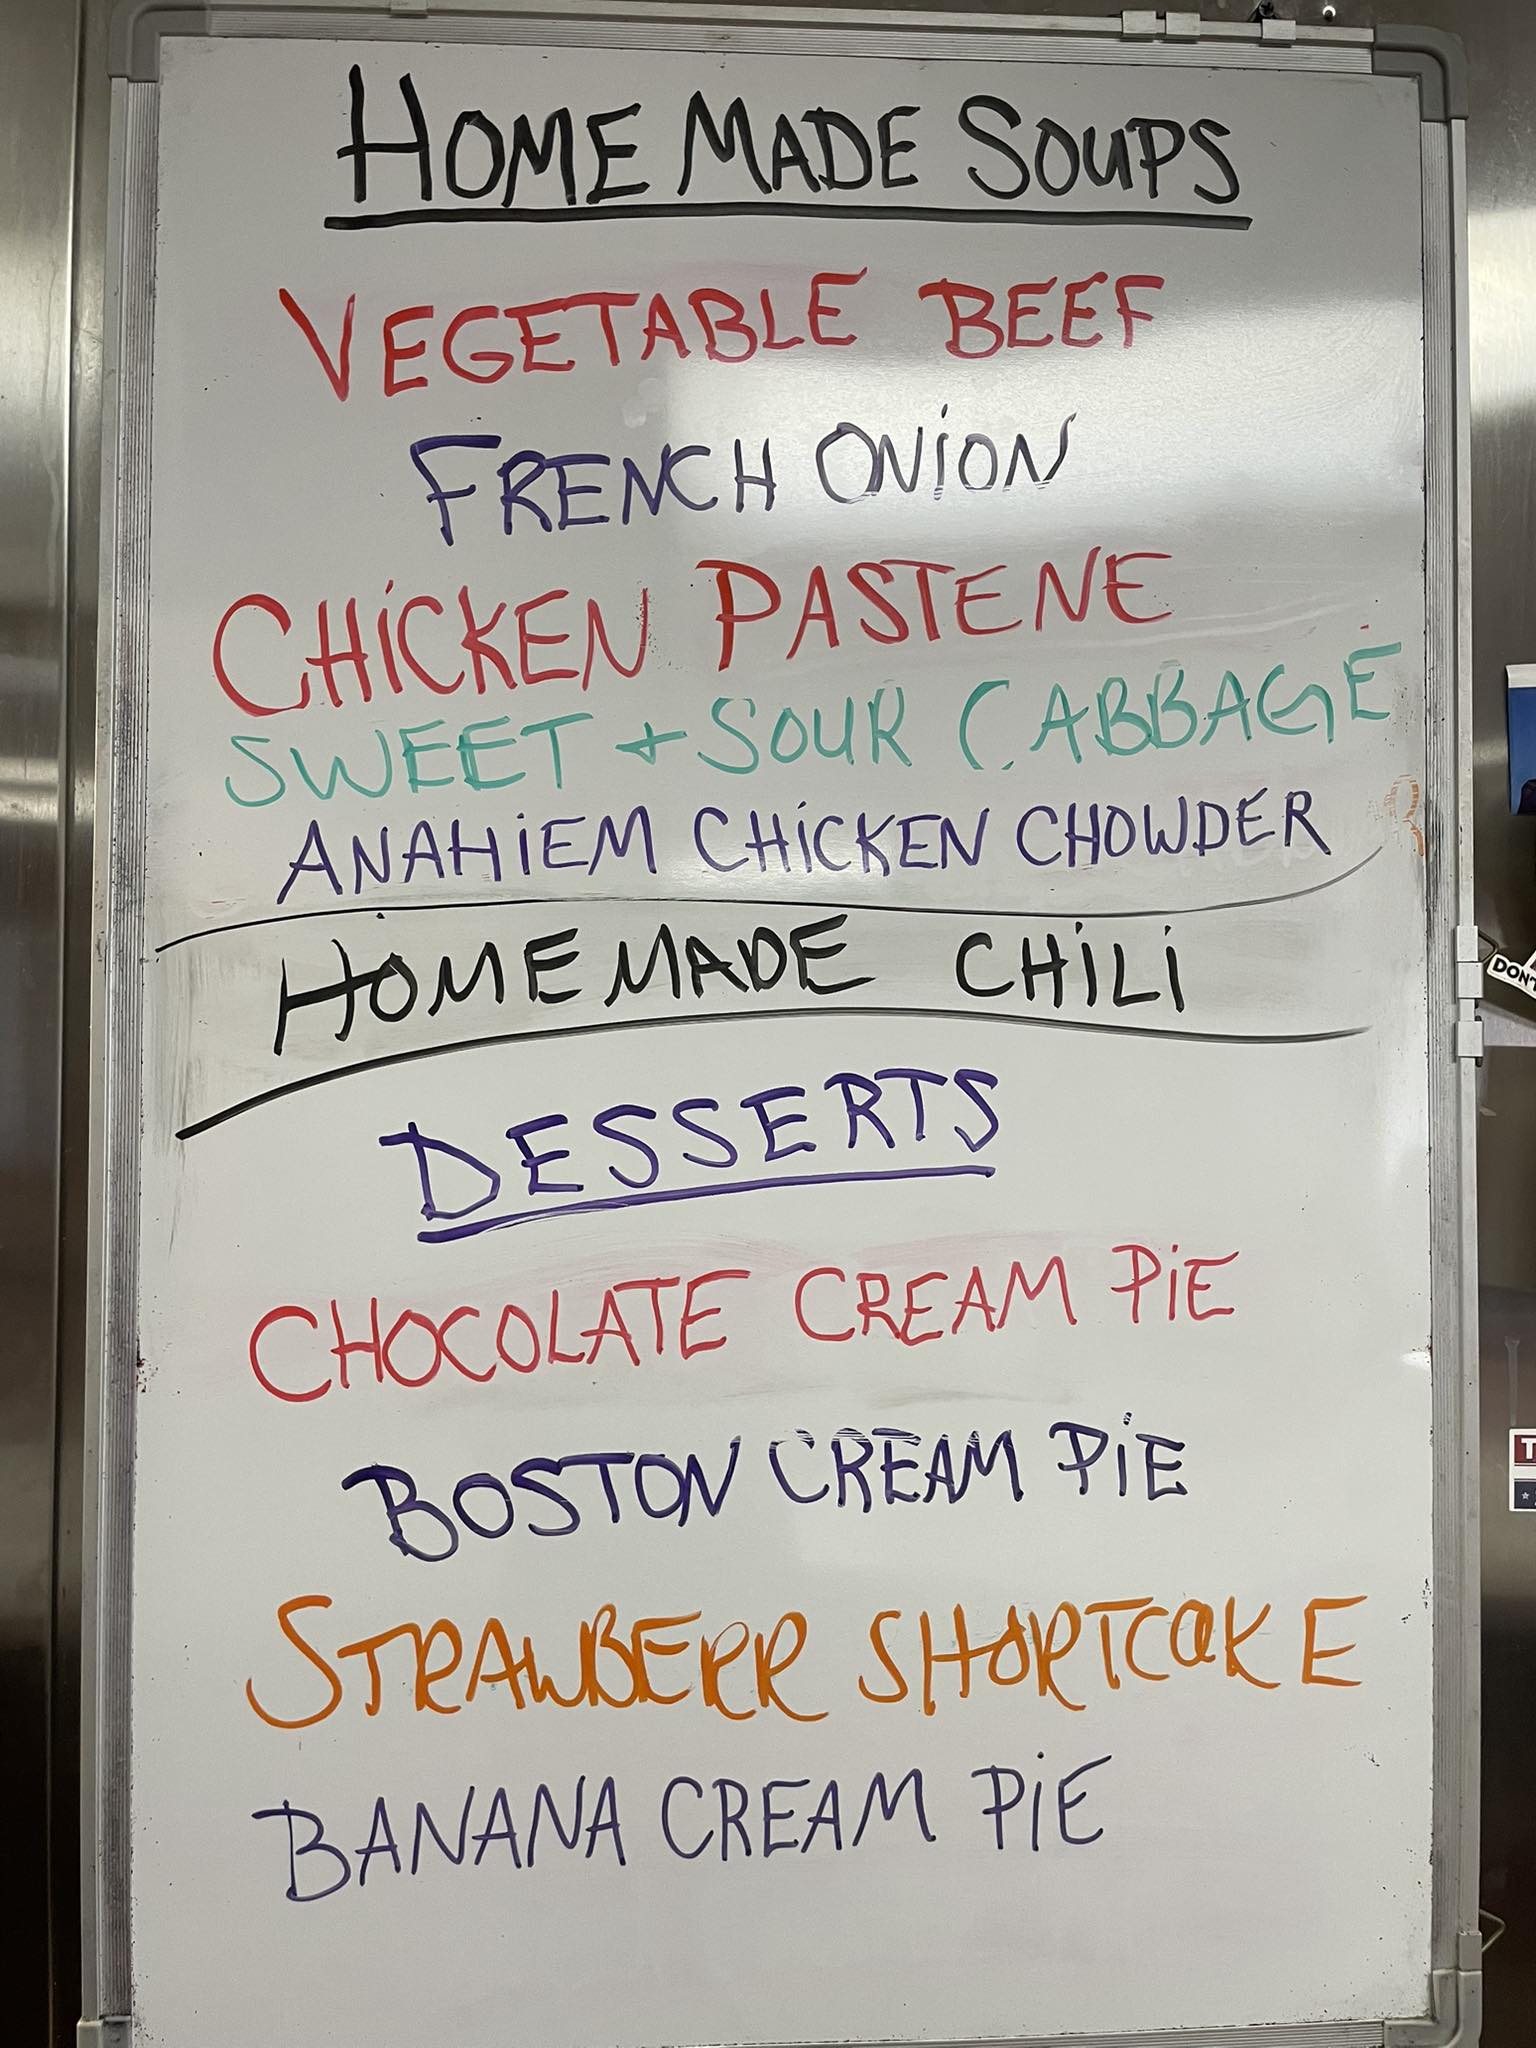 HOMEMADE SOUPS
VEGETABLE BEEF
FRENCH ONION
CHICKEN PASTENE
SWEET + SOUR CABBAGE
ANAHIEM CHICKEN CHOWDER
HOMEMADE CHILI
DESSERTS
CHOCOLATE CREAM PIE
BOSTON CREAM PIE
STRAWBERR SHORTCAKE
BANANA CREAM PIE
DON'T